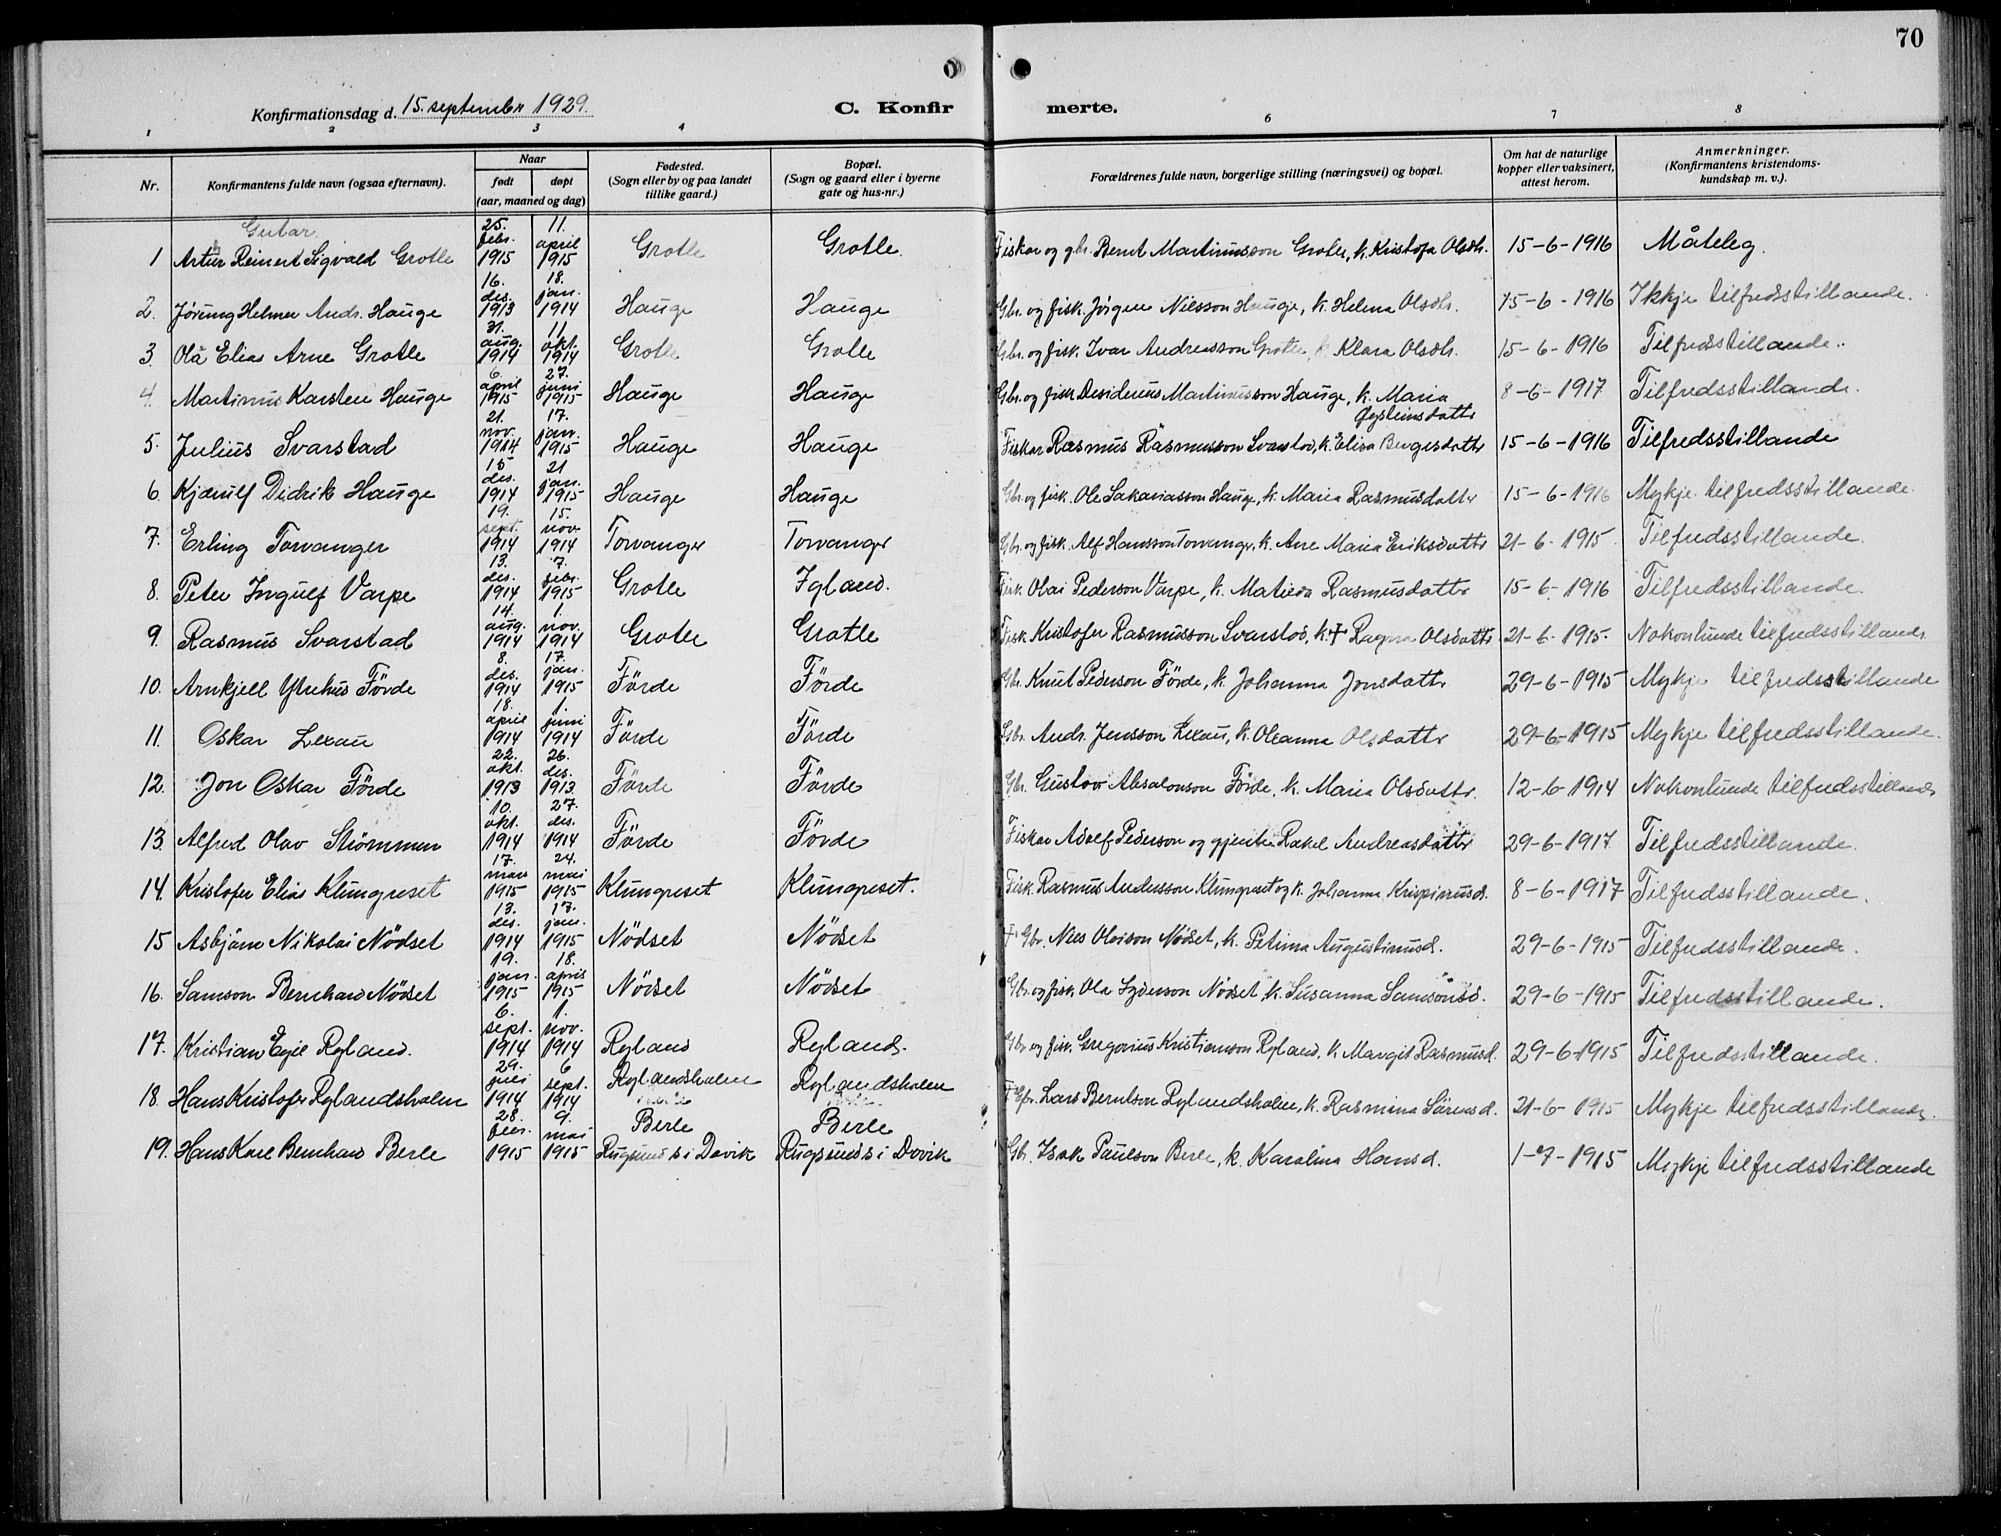 70
Konfirmationsdag d. 15. september 1929.
C. Konfirmerte.
1 2 3 4 6 7 8
Nr. Konfirmantens fulde navn (ogsaa efternavn). Naar født døpt (aar, maaned og dag) Fødested. (Sogn eller by og paa landet tillike gaard.) Bopæl. (Sogn og gaard eller i byerne gate og hus-nr.) Forældrenes fulde navn, borgerlige stilling (næringsvei) og bopæl. Om hat de naturlige kopper eller vaksinert, attest herom. Anmerkninger. (Konfirmantens kristendoms-kundskap m. v.).
Gutar.
1 Artur Reinert Sigvald Grotle 25. febr. 1915 11. april 1915 Grotle Grotle. Fiskar og gbr. Bernt Martinusson Grotle, k. Kristofa Olsdtr. 15-6-1916 Måteleg.
2. Jørung Helmer Andr. Hauge 16. des. 1913 18. jan. 1914 Hauge Hauge Gbr. og fisk. Jørgen Nilsson Hauge, k. Helma Olsdtr. 15-6-1916 Ikkje tilfredsstillande.
3. Ola Elias Arne Grotle 31. aug. 1914 11. okt. 1914 Grotle Grotle Gbr. og fisk. Ivar Andreasson Grotle k. Klara Olsdtr. 15-6-1916 Tilfredsstillande.
4. Martinus Karsten Hauge 6. april 1915 27. juni 1915 Hauge Hauge Gbr. og fisk Desiderius Martinusson Hauge, k. Maria Øysteinsdattr 8-6-1917 Tilfredsstillande.
5. Julius Svarstad 21. nov. 1914 17. jan. 1915 Hauge Hauge Fiskar Rasmus Rasmusson Svarstad, k. Elisa Bergesdattr 15-6-1916 Tilfredsstillande
6. Kjærulf Didrik Hauge 15 des. 1914 21 jan. 1915 Hauge Hauge Gbr. og fisk. Ole Sakariasson Hauge, k. Maria Rasmusdattr 15-6-1916 Mykje tilfredsstillande.
7. Erling Torvanger 19. sept. 1914 15. nov. 1914 Torvanger Torvanger Gbr. og fisk. Alf Hansson Torvanger, k. Ane Maria Eriksdattr 21-6-1915 Tilfredsstillande.
8. Peter Ingulf Varpe 13. des. 1914 7. febr. 1915 Grotle Igland. Fisk. Olai Pederson Varpe, k. Matilda Rasmusdattr 15-6-1916 Tilfredsstillande.
9. Rasmus Svarstad 14. aug. 1914 1. nov. 1914 Grotle Grotle Fisk. Kristofer Rasmusson Svarstad, k. † Ragna Olsdattr. 21-6-1915. Nokonlunde tilfredsstillande.
10. Arnkjell Ytrehus Förde 8. des. 1914 17. jan. 1915 Förde Förde Gbr. Knut Pederson Förde, k. Johanna Jonsdattr 29-6-1915 Mykje tilfredsstillande
11. Oskar Lexau 18. april 1914 1. juni 1914 Förde Förde Gbr. Andr. Jensson Lexau, k. Oleanna Olsdattr 29-6-1915 Mykje tilfredsstillande.
12. Jon Oskar Förde 22. okt. 1913 26. des. 1913 Förde Förde Gbr. Gustav Absalonson Förde, k. Maria Olsdattr. 12-6-1914 Nokonlunde tilfredsstillande
13. Alfred Olav Strömmen 10. okt. 1914 27. des. 1914 Förde Förde Fiskar Adolf Pederson og gjenta Rakel Andreasdattr 29-6-1917 Tilfredsstillande.
14. Kristofer Elias Klungreset 17. mars 1915 24. mai 1915 Klungreset Klungreset. Fisk. Rasmus Andersson Klungreset og k. Johanna Krispinusd. 8-6-1917 Tilfredsstillande.
15 Asbjörn Nikolai Nödset 13. des. 1914 17. jan. 1915 Nödset Nödset † Gbr. Nils Olaison Nödset, k. Petina Augustinusd. 29-6-1915 Tilfredsstillande.
16. Samson Bernhard Nödset 19. jan. 1915 18. april 1915 Nödset Nödset Gbr. og fisk. Ola Syverson Nödset, k. Susanna Samsonsd. 29-6-1915 Tilfredsstillande.
17. Kristian Egil Rylan̄d. 6. sept. 1914 1. nov. 1914 Ryland Ryland. Gbr. og fisk. Gregorius Kristianson Ryland, k. Margit Rasmusd. 29-6-1915 Tilfredsstillande.
18. Hans Kristofer Rylandsholm 29. juli 1914 6 sept. 1914 Rylandsholm Rylandsholm † Gbr. Lars Berntson Rylandsholm, k. Rasmina Sörensd. 21-6-1915 Mykje tilfredsstillande.
19. Hans Karl Bernhard Berle 28. febr. 1915 9. mai 1915 Berle Rugsund s. i Davik Berle Rugsund s. i Davik Gbr. Isak Paulson Berle, k. Karolina Hansd. 1-7-1915 Mykje tilfredsstillande